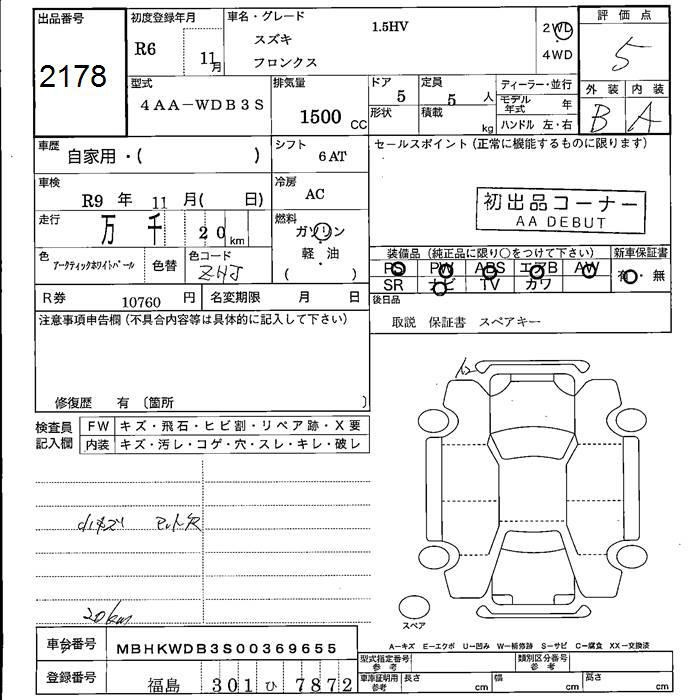 出品番号
2178
初度登録年月
R6 11月
車名・グレード 1.5HV
スズキ
フロンクス
2WD
4WD
評価点
5
外装 内装
B A
型式
4AA-WDB3S
排気量
1500 CC
ドア 5
形状
定員 5 人
積載 kg
ディーラー・並行
モデル年式 年
ハンドル 左・右
車歴 自家用・( )
シフト 6AT
車検 R9 年 11 月( 日)
冷房 AC
走行 万 千 20 km
燃料 ガソリン
軽・油
( )
色 アークティックホワイトパール
色替
色コード ZHJ
R券 10760 円
名変期限 月 日
セールスポイント(正常に機能するものに限ります)
初出品コーナー
AA DEBUT
装備品(純正品に限り○をつけて下さい)
PS PW ABS エアB AW
SR ナビ TV カワ
新車保証書
有・無
後日品
取説 保証書 スペアキー
注意事項申告欄(不具合内容等は具体的に記入して下さい)
修復歴 有〔箇所 〕
検査員記入欄
FW キズ・飛石・ヒビ割・リペア跡・X要
内装 キズ・汚レ・コゲ・穴・スレ・キレ・破レ
小キズ マット欠
20km
スペア
A-キズ E-エクボ U-凹み W-補修跡 S-サビ C-腐食 XX-交換済
車台番号 MBHKWDB3S00369655
登録番号 福島 301 ひ 7872
型式指定番号 参考
類別区分番号 参考
車庫証明用 参考
長さ cm
幅 cm
高さ cm